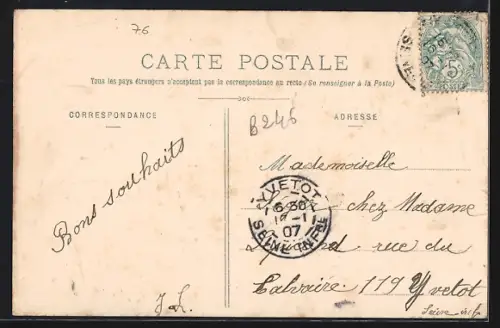 76
CARTE POSTALE
Tous les pays étrangers n'acceptent pas la correspondance au recto (Se renseigner à la Poste)
CORRESPONDANCE
ADRESSE
B246
Bons souhaits
J L.
Mademoiselle
chez Madame
rue du
Calvaire 119 Yvetot
YVETOT
6 30
1
07
SEINE INFRE
5